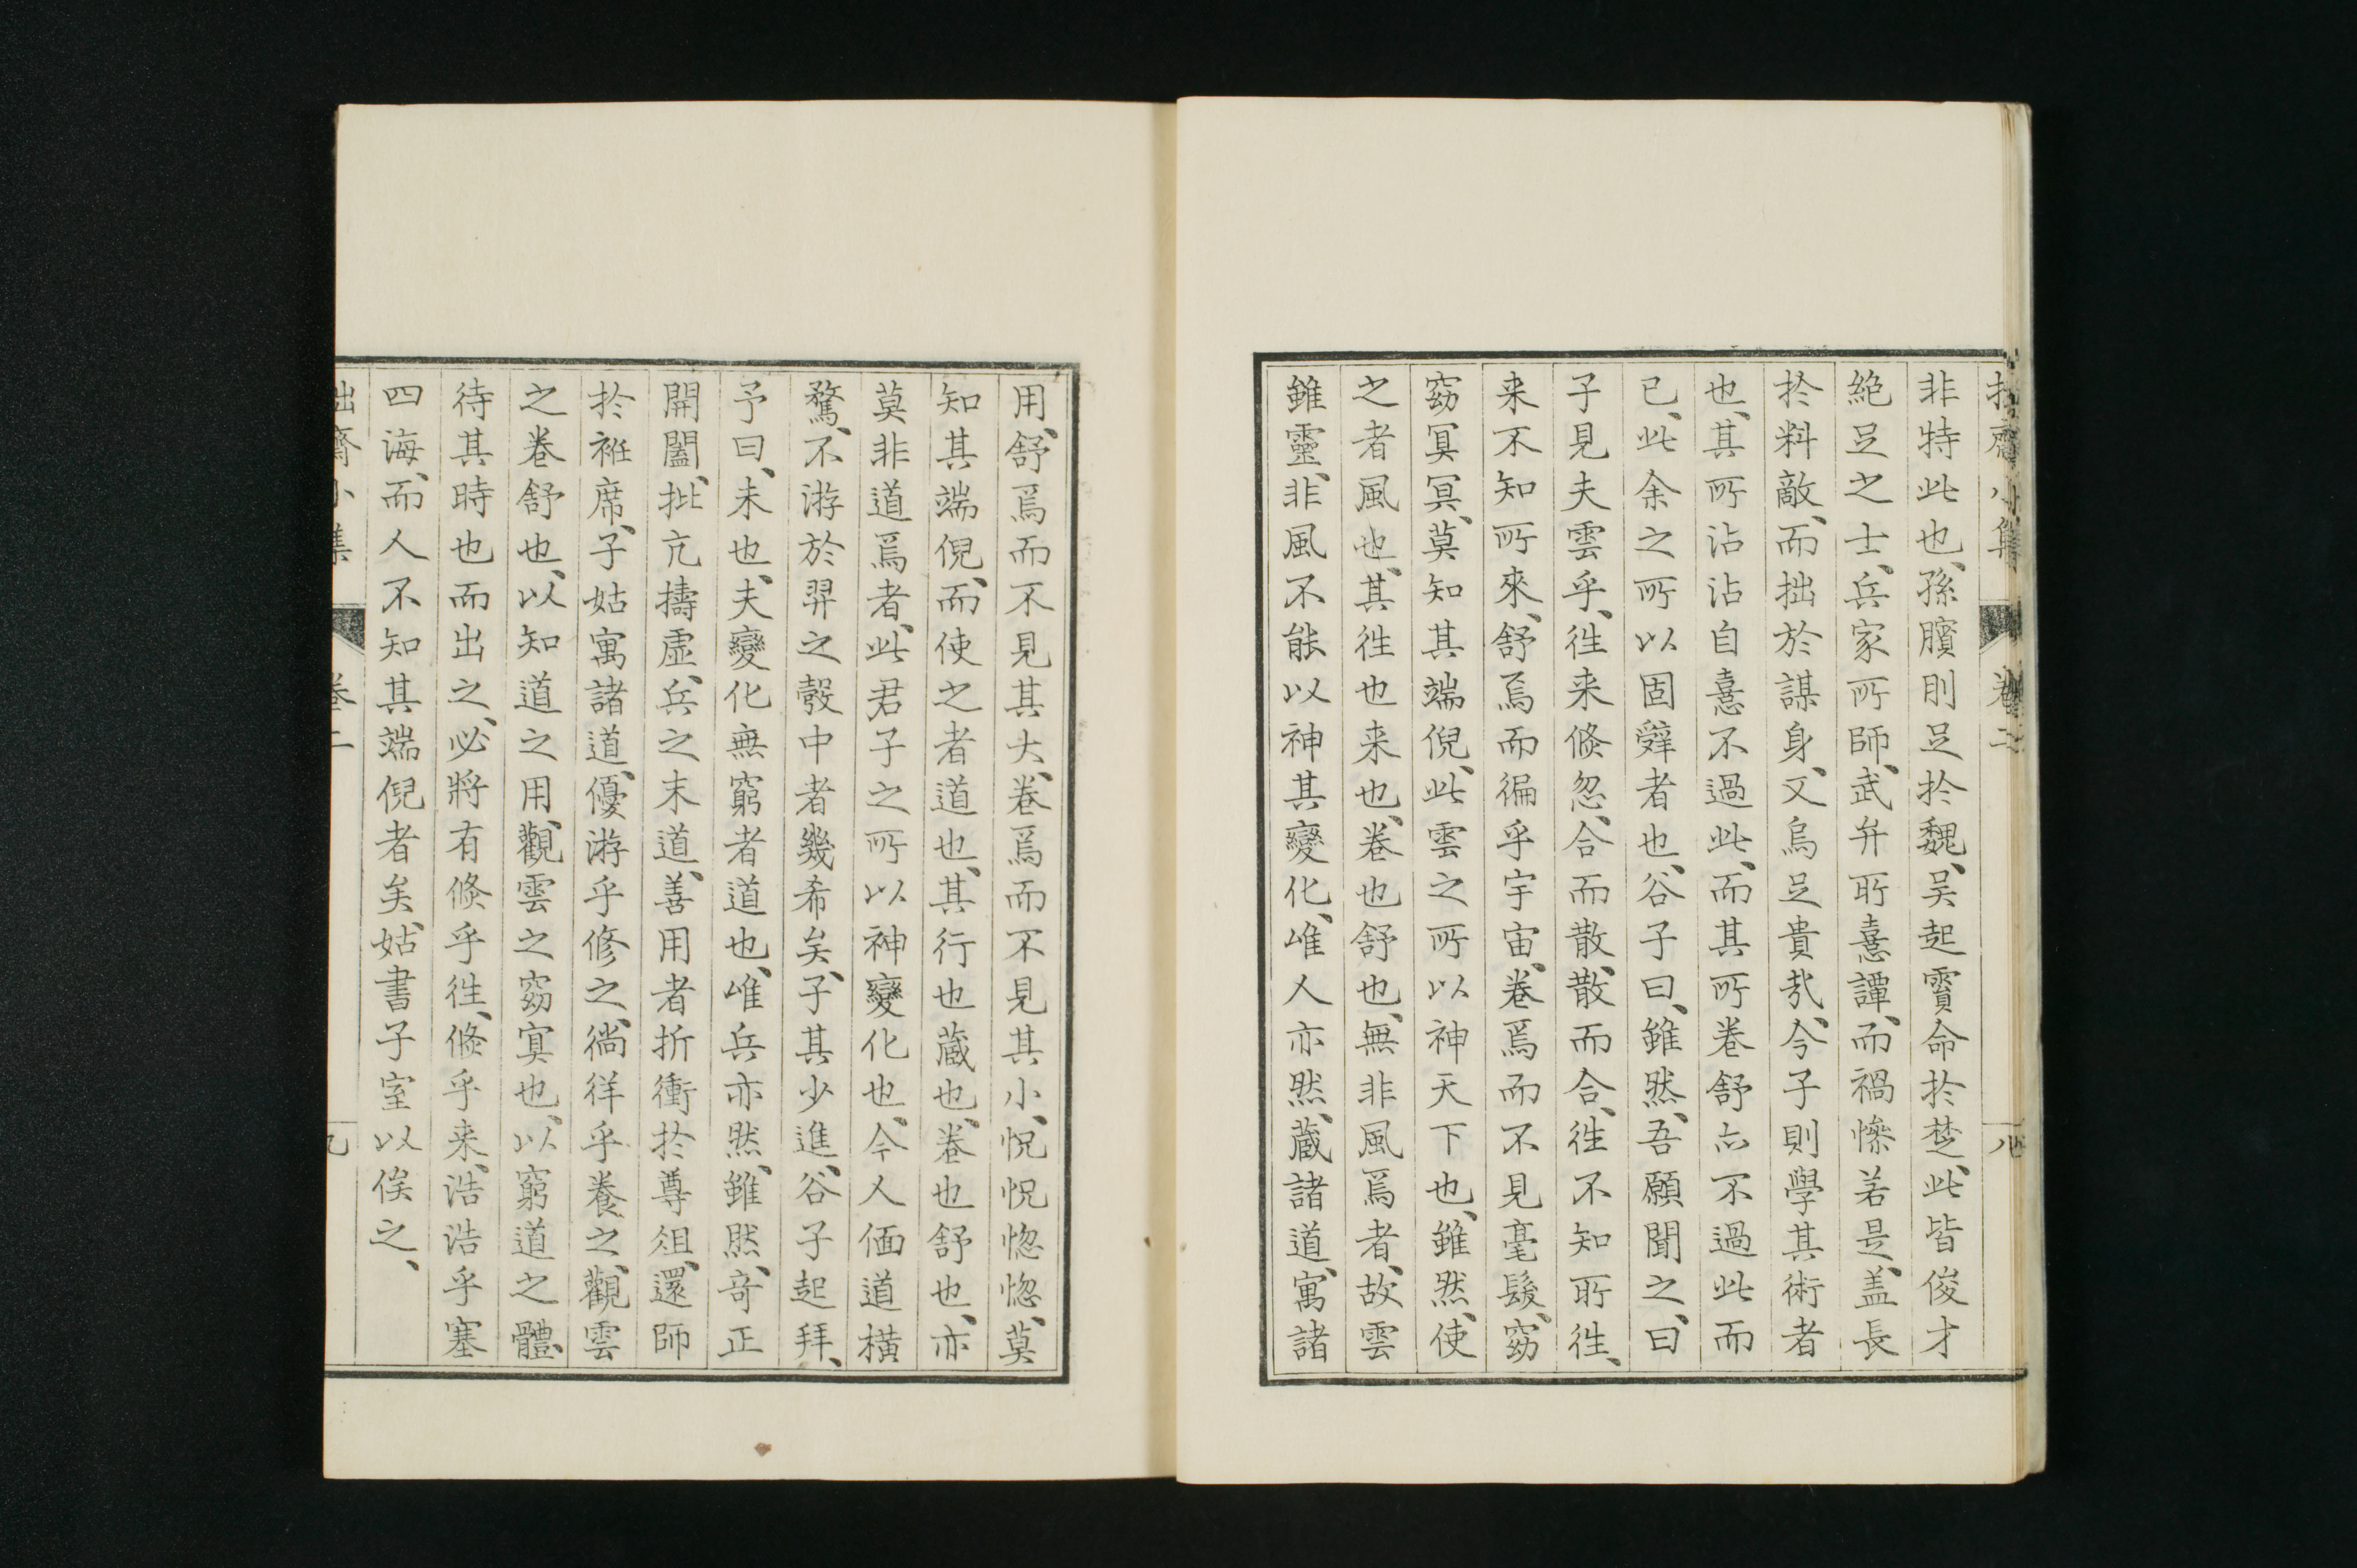 拙齋小集 卷二 八
非特此也、孫臏刖足於魏、吴起賫命於楚、此皆俊才
絶足之士、兵家所師、武弁所憙譚、而禍慘若是、盖長
於料敵、而拙於謀身、又烏足貴哉、今子則學其術者
也、其所沾沾自憙不過此、而其所卷舒亦不過此而
已、此余之所以固辭者也、谷子曰、雖然、吾願聞之、曰、
子見夫雲乎、徃来倏忽、合而散、散而合、徃不知所徃、
来不知所來、舒焉而徧乎宇宙、卷焉而不見毫髮、窈
窈冥冥、莫知其端倪、此雲之所以神天下也、雖然、使
之者風也、其徃也来也、卷也舒也、無非風焉者、故雲
雖靈、非風不能以神其變化、唯人亦然、藏諸道、寓諸
用、舒焉而不見其大、卷焉而不見其小、怳怳惚惚、莫
知其端倪、而使之者道也、其行也藏也、卷也舒也、亦
莫非道焉者、此君子之所以神變化也、今人偭道橫
騖、不游於羿之彀中者幾希矣、子其少進、谷子起拜、
予曰、未也、夫變化無窮者道也、唯兵亦然、雖然、竒正
開闔、批亢擣虛、兵之末道、善用者折衝於尊俎、還師
於袵席、子姑寓諸道、優游乎修之、徜徉乎養之、觀雲
之卷舒也、以知道之用、觀雲之窈冥也、以窮道之體、
待其時也而出之、必將有倏乎徃、倏乎来、浩浩乎塞
四海、而人不知其端倪者矣、姑書子室以俟之、
拙齋小集 卷二 九